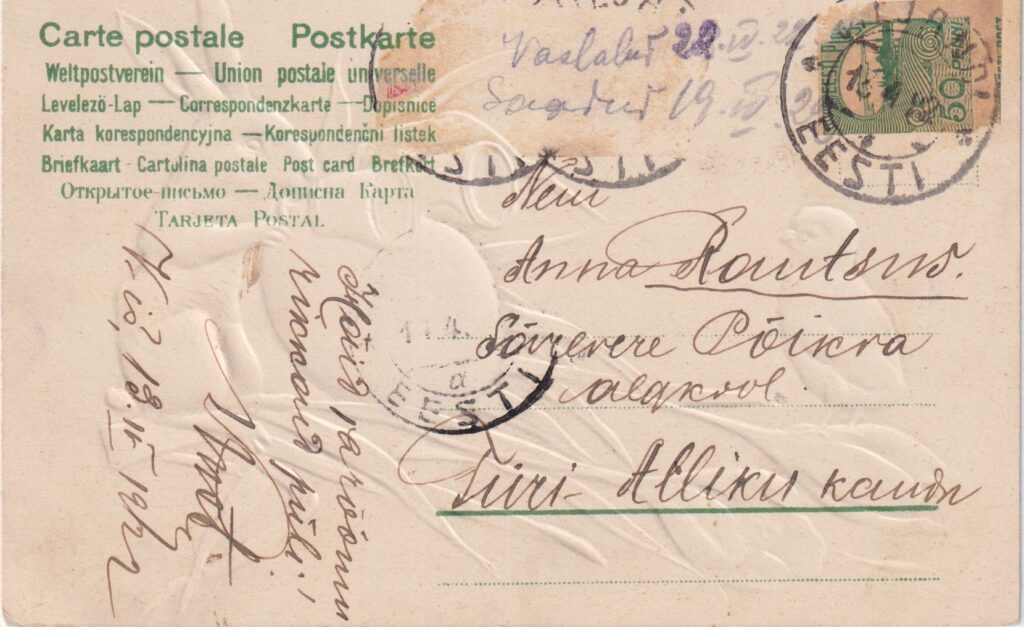 Carte postale Postkarte
Weltpostverein — Union postale universelle
Levelező-Lap — Correspondenzkarte — Dopisnice
Karta korespondencyjna — Korespondenční listek
Briefkaart - Cartolina postale Post card Brefkort
Открытое-письмо — Дописна Карта
TARJETA POSTAL
Vastatud 22.IV.22
Saadud 19.IV.22
EESTI POST
50 PENNI
EESTI
EESTI
EESTI
Neiu
Anna Rautsus.
Särevere Põikva
algkool
Türi-Alliku kaudu
Häid ja rõõmu
rikkaid pühi!
18.IV.1922